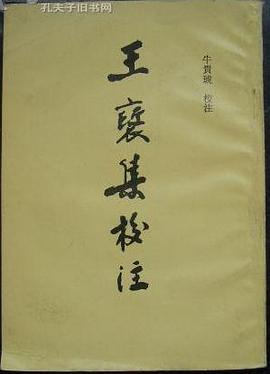 孔夫子旧书网
牛貴琥 校注
王襃集校注